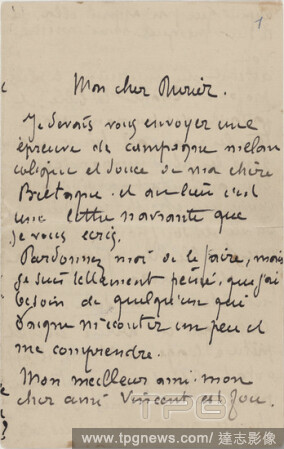 1
Mon cher Aurier.
Je devais vous envoyer une
épreuve de campagne mélan
colique et douce de ma chère
Bretagne. et au lieu c'est
une lettre navrante que
je vous écris.
Pardonnez moi de le faire, mais
je suis tellement peiné, que j'ai
besoin de quelqu'un qui
daigne m'écouter un peu et
me comprendre.
Mon meilleur ami mon
cher ami Vincent est fou.
TPG
www.tpgnews.com / 達志影像